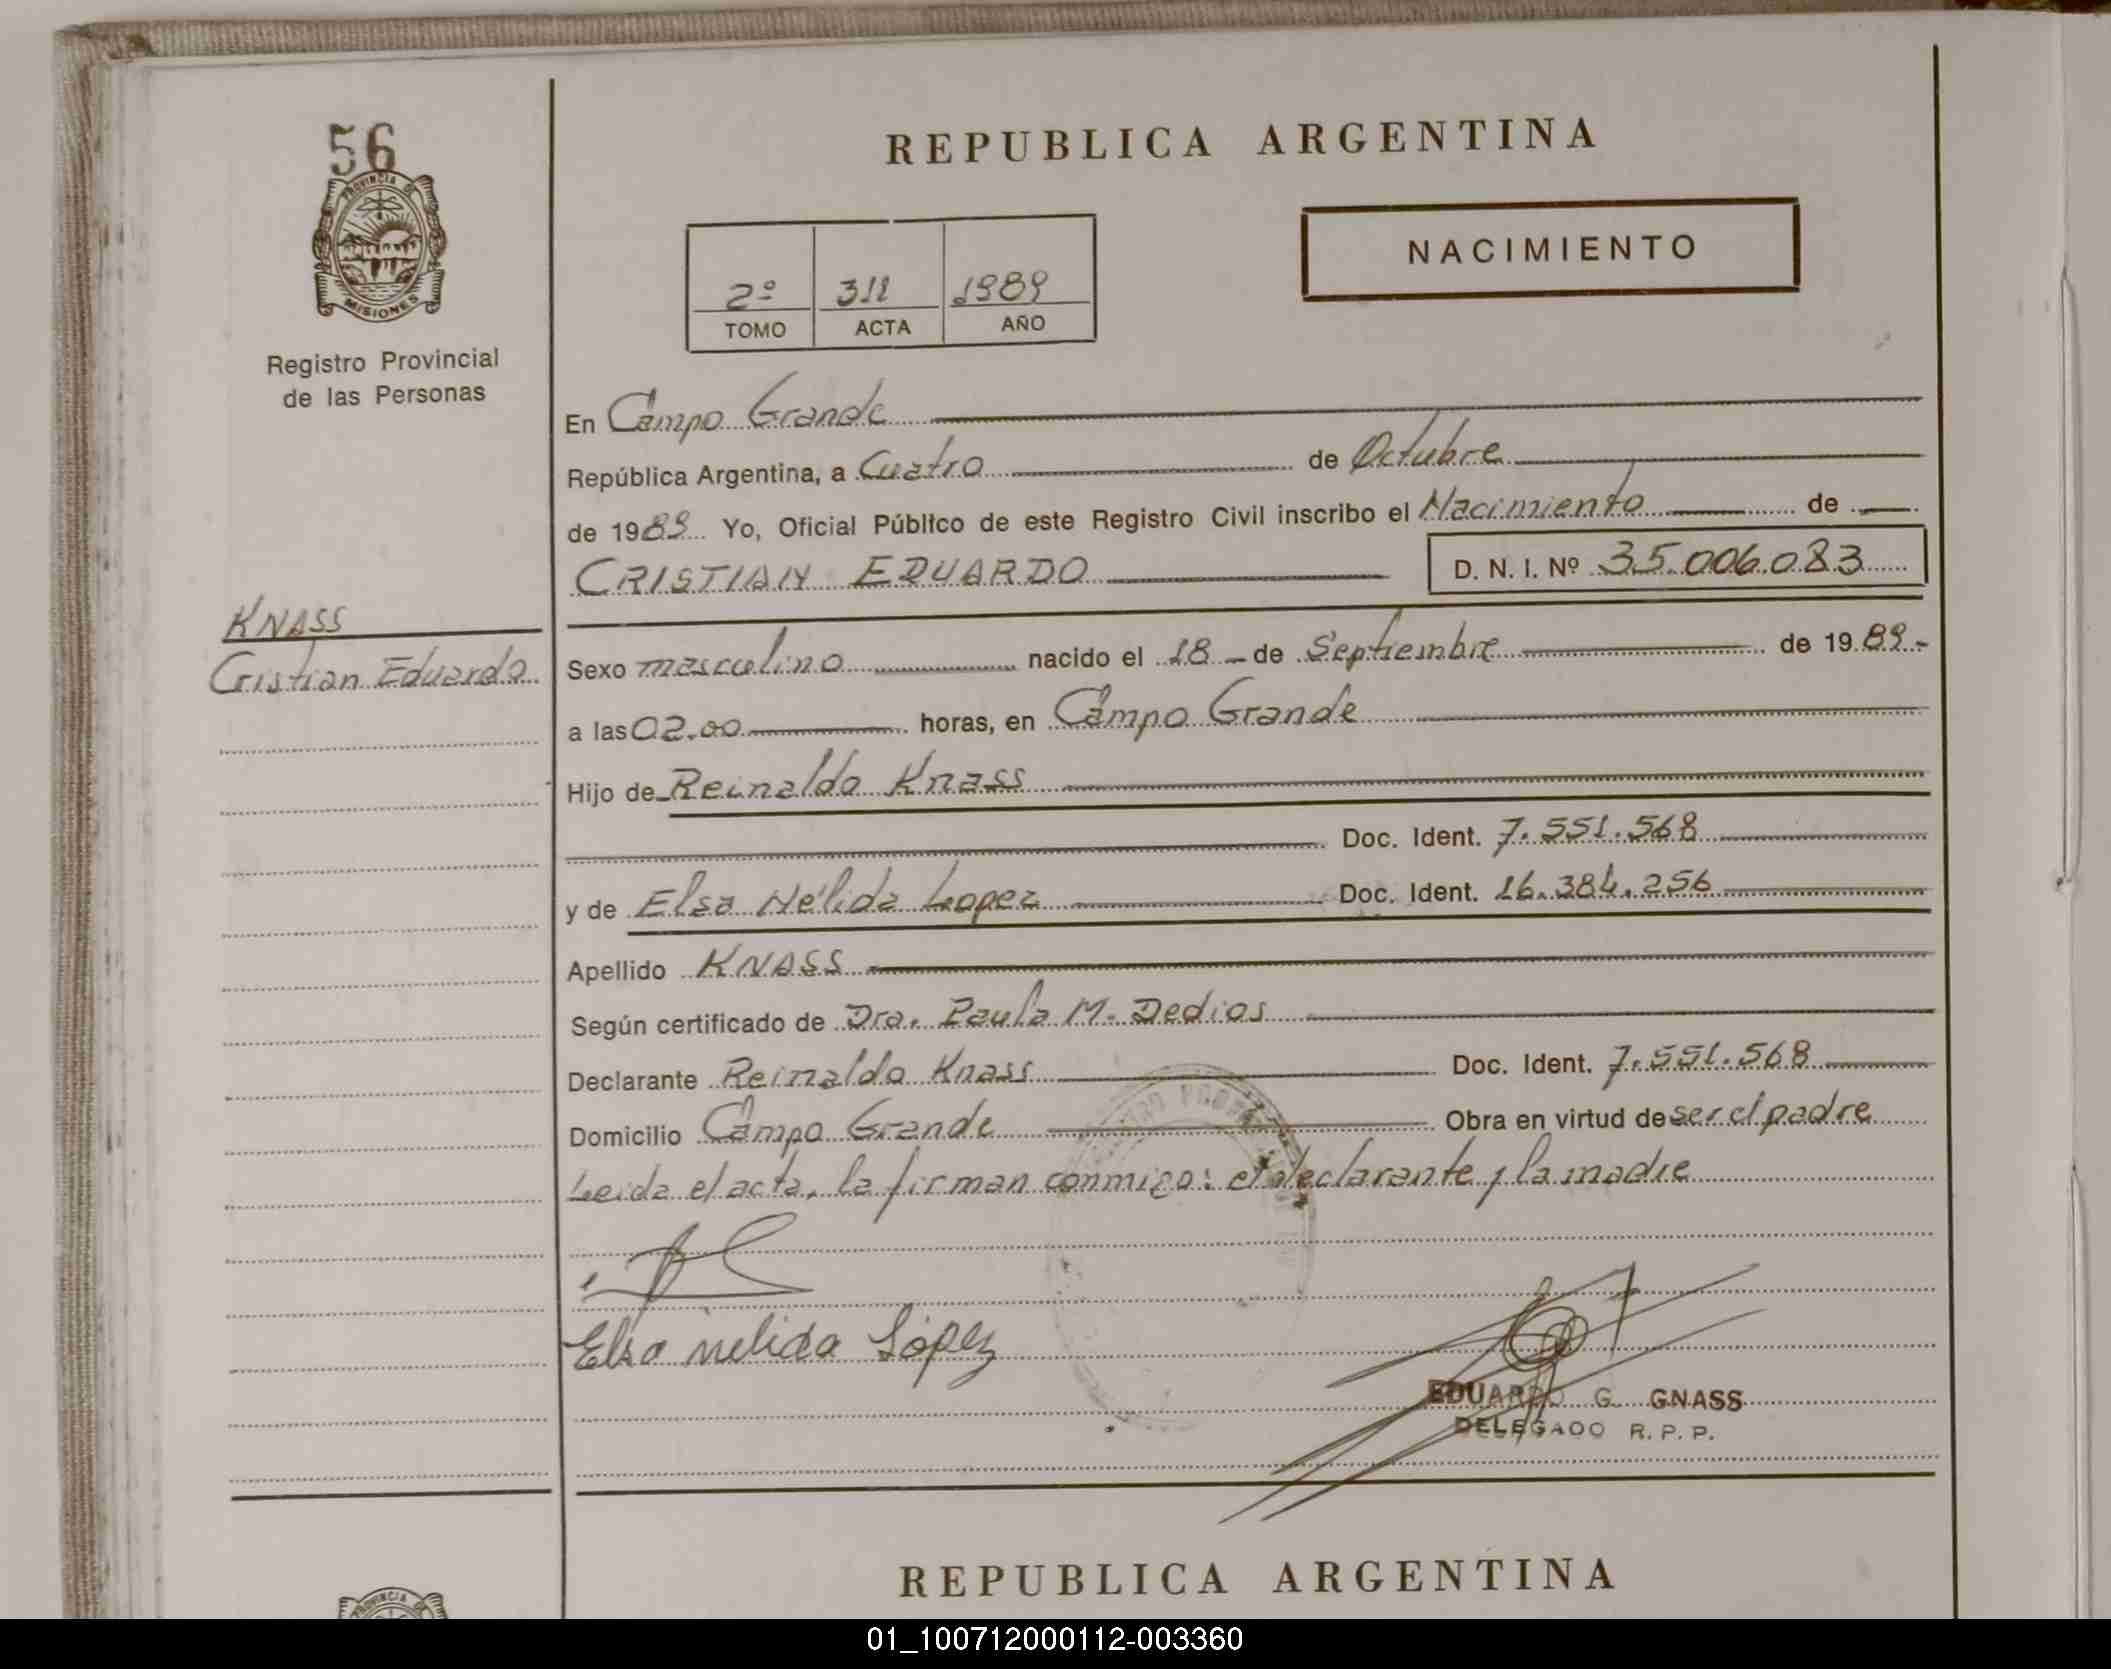 56
PROVINCIA DE
MISIONES
Registro Provincial
de las Personas
KNASS
Cristian Eduardo
REPUBLICA ARGENTINA
NACIMIENTO
2º 311 1989
TOMO ACTA AÑO
En Campo Grande
República Argentina, a Cuatro de Octubre
de 1989 Yo, Oficial Público de este Registro Civil inscribo el Nacimiento de
CRISTIAN EDUARDO D. N. I. Nº 35.006.083
Sexo masculino nacido el 18 - de Septiembre de 1989.-
a las 02.00 horas, en Campo Grande
Hijo de Reinaldo Knass
Doc. Ident. 7.551.568
y de Elsa Nélida Lopez Doc. Ident. 16.384.256
Apellido KNASS
Según certificado de Dra. Paula M. Dedios
Declarante Reinaldo Knass Doc. Ident. 7.551.568
Domicilio Campo Grande Obra en virtud de ser el padre
Leida el acta, la firman conmigo: el declarante y la madre
Elsa nelida López
EDUARDO G. GNASS
DELEGADO R. P. P.
REPUBLICA ARGENTINA
PROVINCIA DE
01_100712000112-003360